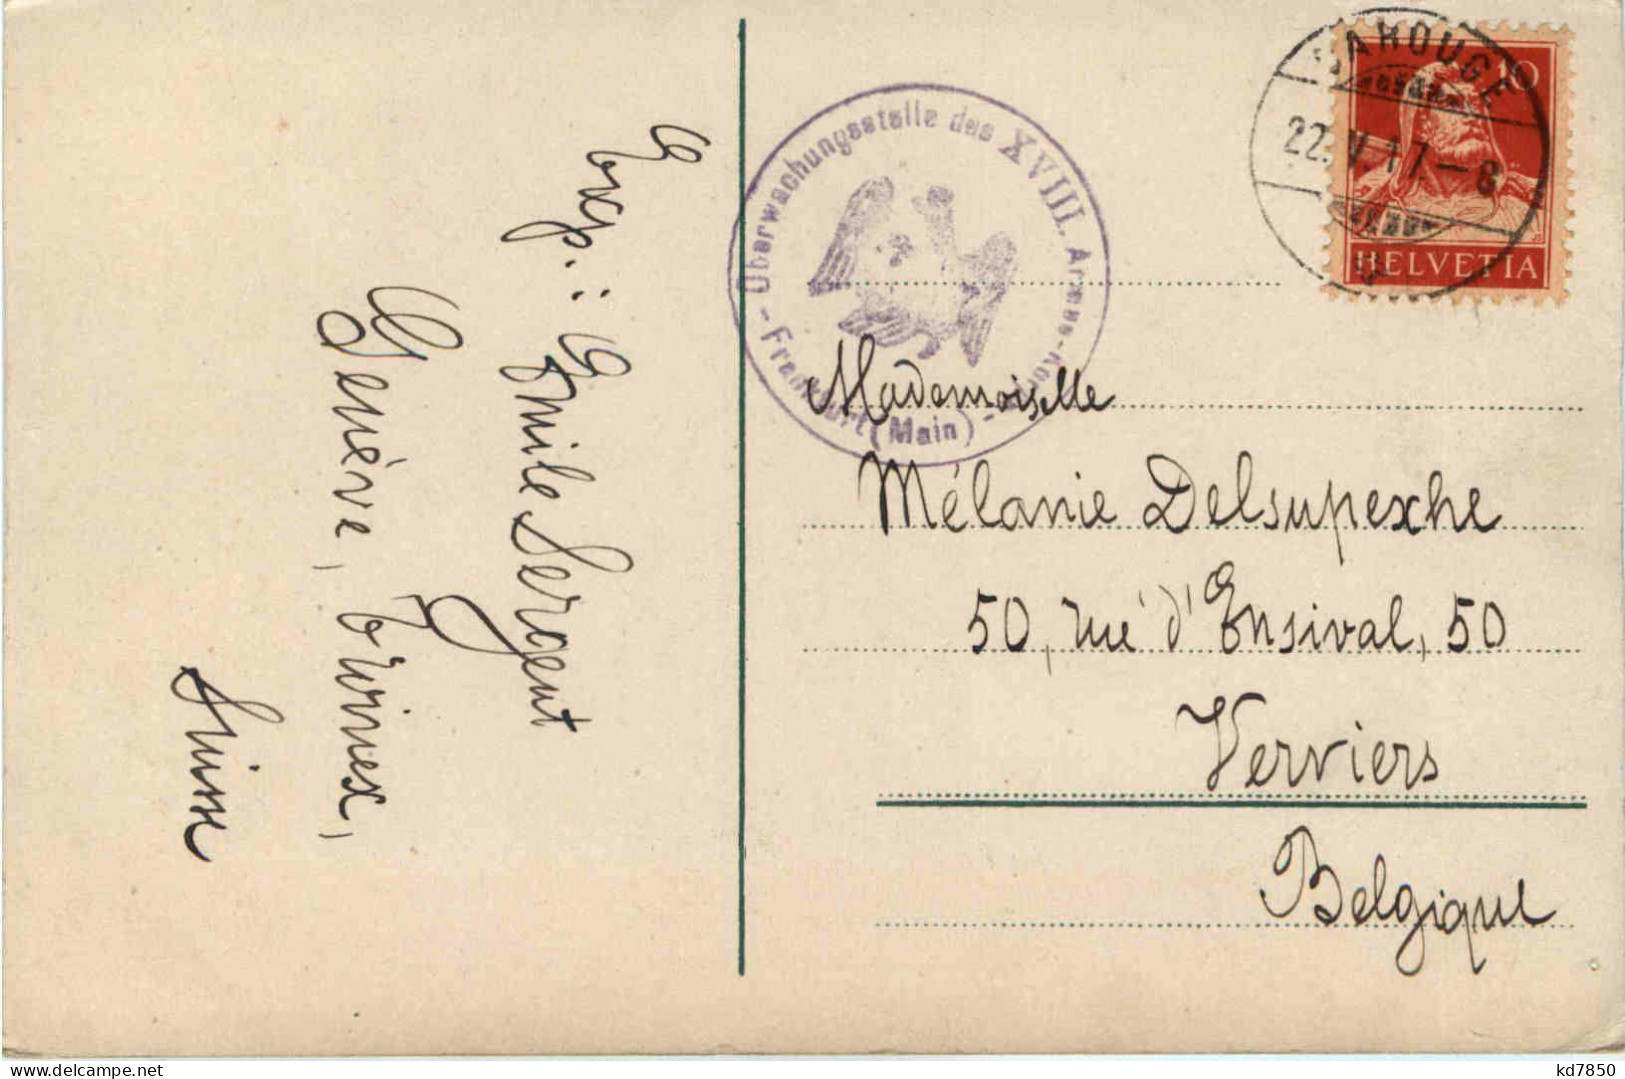 Exp.: Emile Sergent
Genève, Troinex,
Suisse
Überwachungsstelle des XVIII. Armee-
Frankfurt (Main)
CAROUGE
22.V.17.-8
10
HELVETIA
Mademoiselle
Mélanie Delsupexhe
50, rue d'Ensival, 50
Verviers
Belgique
kd7850